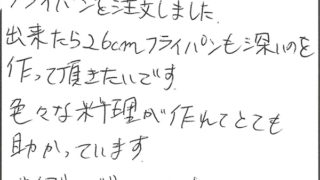 フライパンを注文しました.
出来たら26cmフライパンも深いのを
作って頂きたいです.
色々な料理が作れてとても
助かっています.